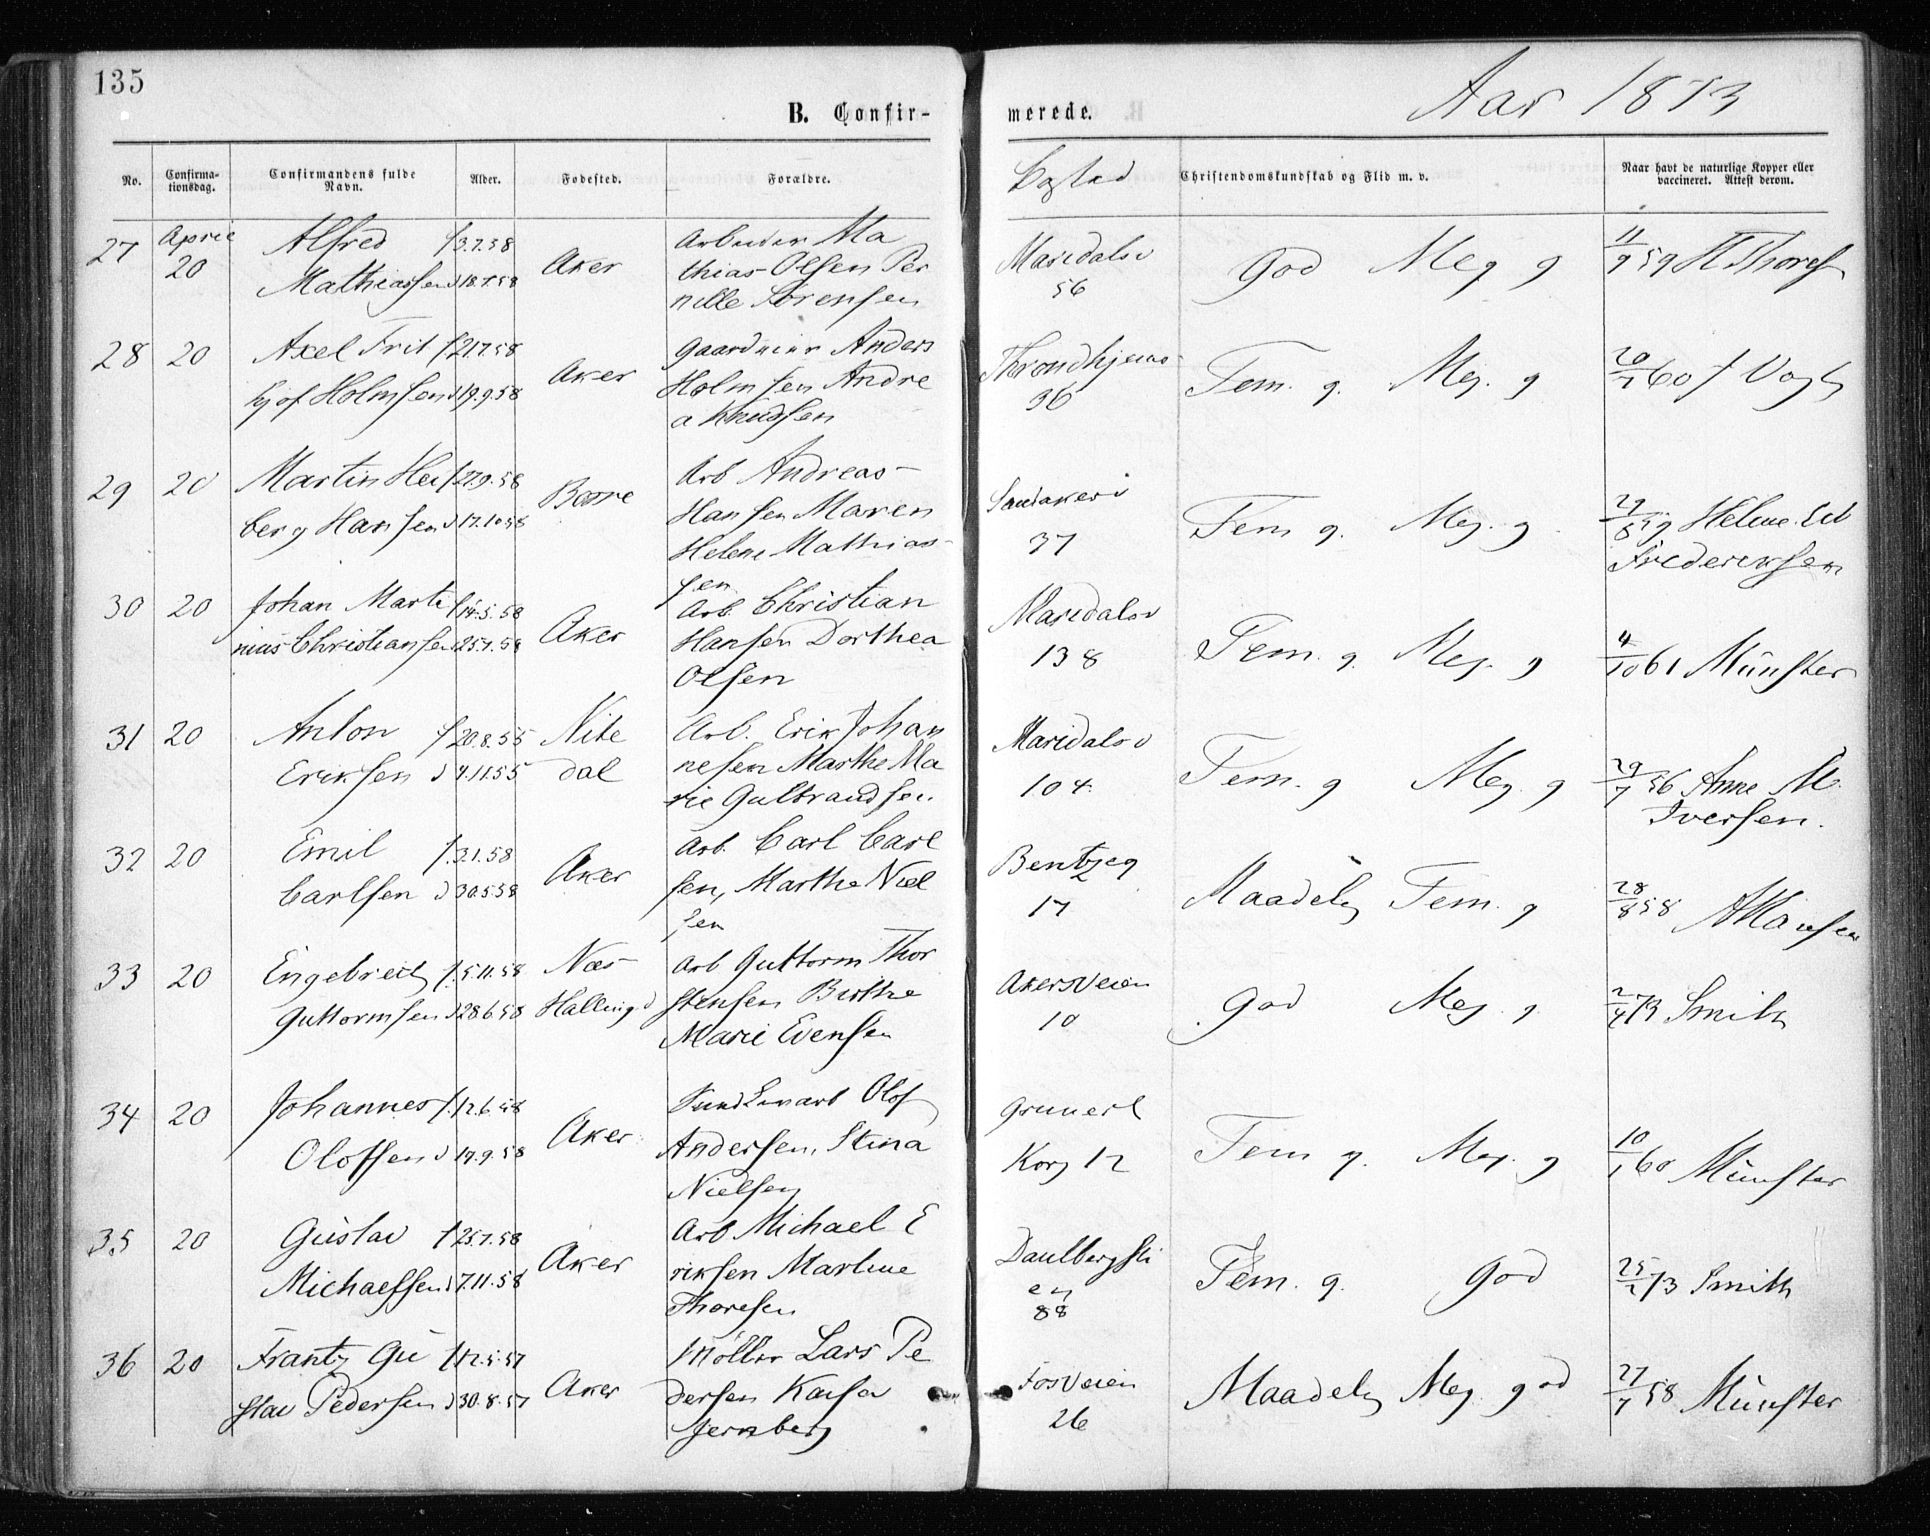 135
B. Confir-
merede.
Aar 1873
No.
Confirma-
tionsdag.
Confirmandens fulde
Navn.
Alder.
Fødested.
Forældre.
Bosted
Christendomskundskab og Flid m. v.
Naar havt de naturlige Kopper eller
vaccineret. Attest derom.
27 April Alfred f 3.7.58 Arbeider Ma
20 Mathiassen d 18.7.58 Aker thias Olsen Per
nille Sørensen
Maridalsv
56
God Meg g
11/9 59 Thores
28 20 Axel Frit f 21.7.58 Gaardeier Anders
hjof Holmsen d 19.9.58 Aker Holmsen Andre
a Knudsen
Throndhjems
36
Tem. g. Meg. g
20/7 60 J Vogt
29 20 Martin Hei f 27.9.58 Arb Andreas
berg Hansen d 17.10.58 Borre Hansen Maren
Helene Mathias
sen
Sandakerv
37
Tem g. Meg. g
29/8 59 Helene
Frederiksen
30 20 Johan Marti f 14.5.58 Arb. Christian
nius Christiansen d 25.7.58 Aker Hansen Dorthea
Olsen
Maridalsv
138
Tem. g. Meg. g
4/10 61 Münster
31 20 Anton f 20.8.55 Nite Arb. Erik Johan
Eriksen d 4.11.55 dal nesen Marthe Ma
rie Gulbrandsen
Maridalsv
104
Tem. g Meg. g
29/7 56 Anne M.
Iversen.
32 20 Emil f. 3.1.58 Arb. Carl Carl
Carlsen d 30.5.58 Aker sen, Marthe Niel
sen
Bentzeg
17
Maadelig Tem. g
28/8 58 Hansen
33 20 Engebreth f. 5.11.58 Næs Arb Guttorm Thor
Guttormsen d 28.6.58 Hallingd stensen Birthe
Marie Evensen
Akersveien
10
God Meg. g
2/4 73 Smith
34 20 Johannes f. 12.6.58 Olof
Oloffsen d 19.9.58 Aker Andersen, Stina
Nielsen
Grunerl
Korg 12
Tem g. Meg. g
10/1 60 Münster
35 20 Gustav f 25.7.58 Arb Michael E
Michaelsen d 7.11.58 Aker riksen Martine
Thoresen
Dahlbergsti
en
88
Tem. g. God
25/2 73 Smith
36 20 Frantz Gu f 12.5.57 Møller Lars Pe
stav Pedersen d 30.8.57 Aker dersen Kaisa
Jernberg
Fosveien
26
Maadelig Meg. god
27/7 58 Münster